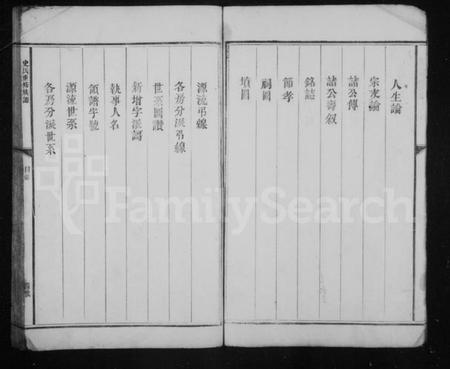 人生論
宗友論
諸公傳
諸公壽叙
銘誌
節孝
祠圖
墳圖
源流弔線
各房分派弔線
世系圖讚
新增字派詞
執事人名
領譜字號
源流世系
各房分派世系
史氏重修族譜
目錄
FamilySearch